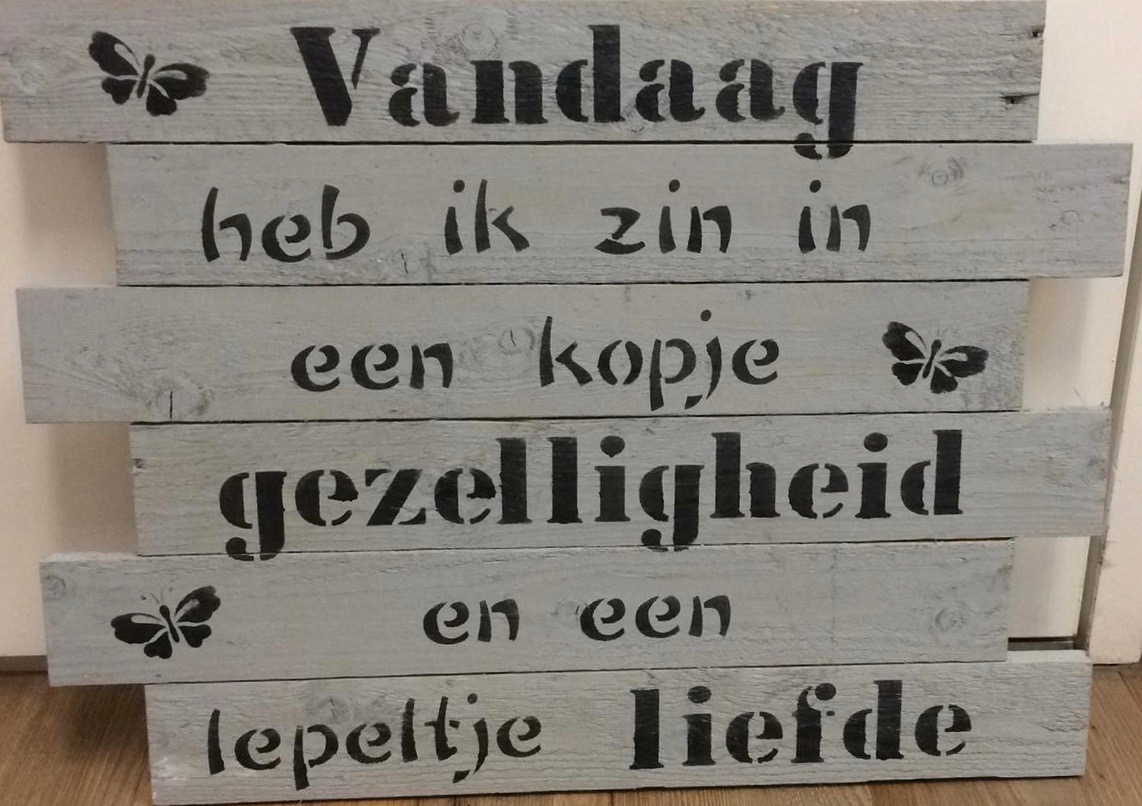 Vandaag
heb ik zin in
een kopje
gezelligheid
en een
lepeltje liefde